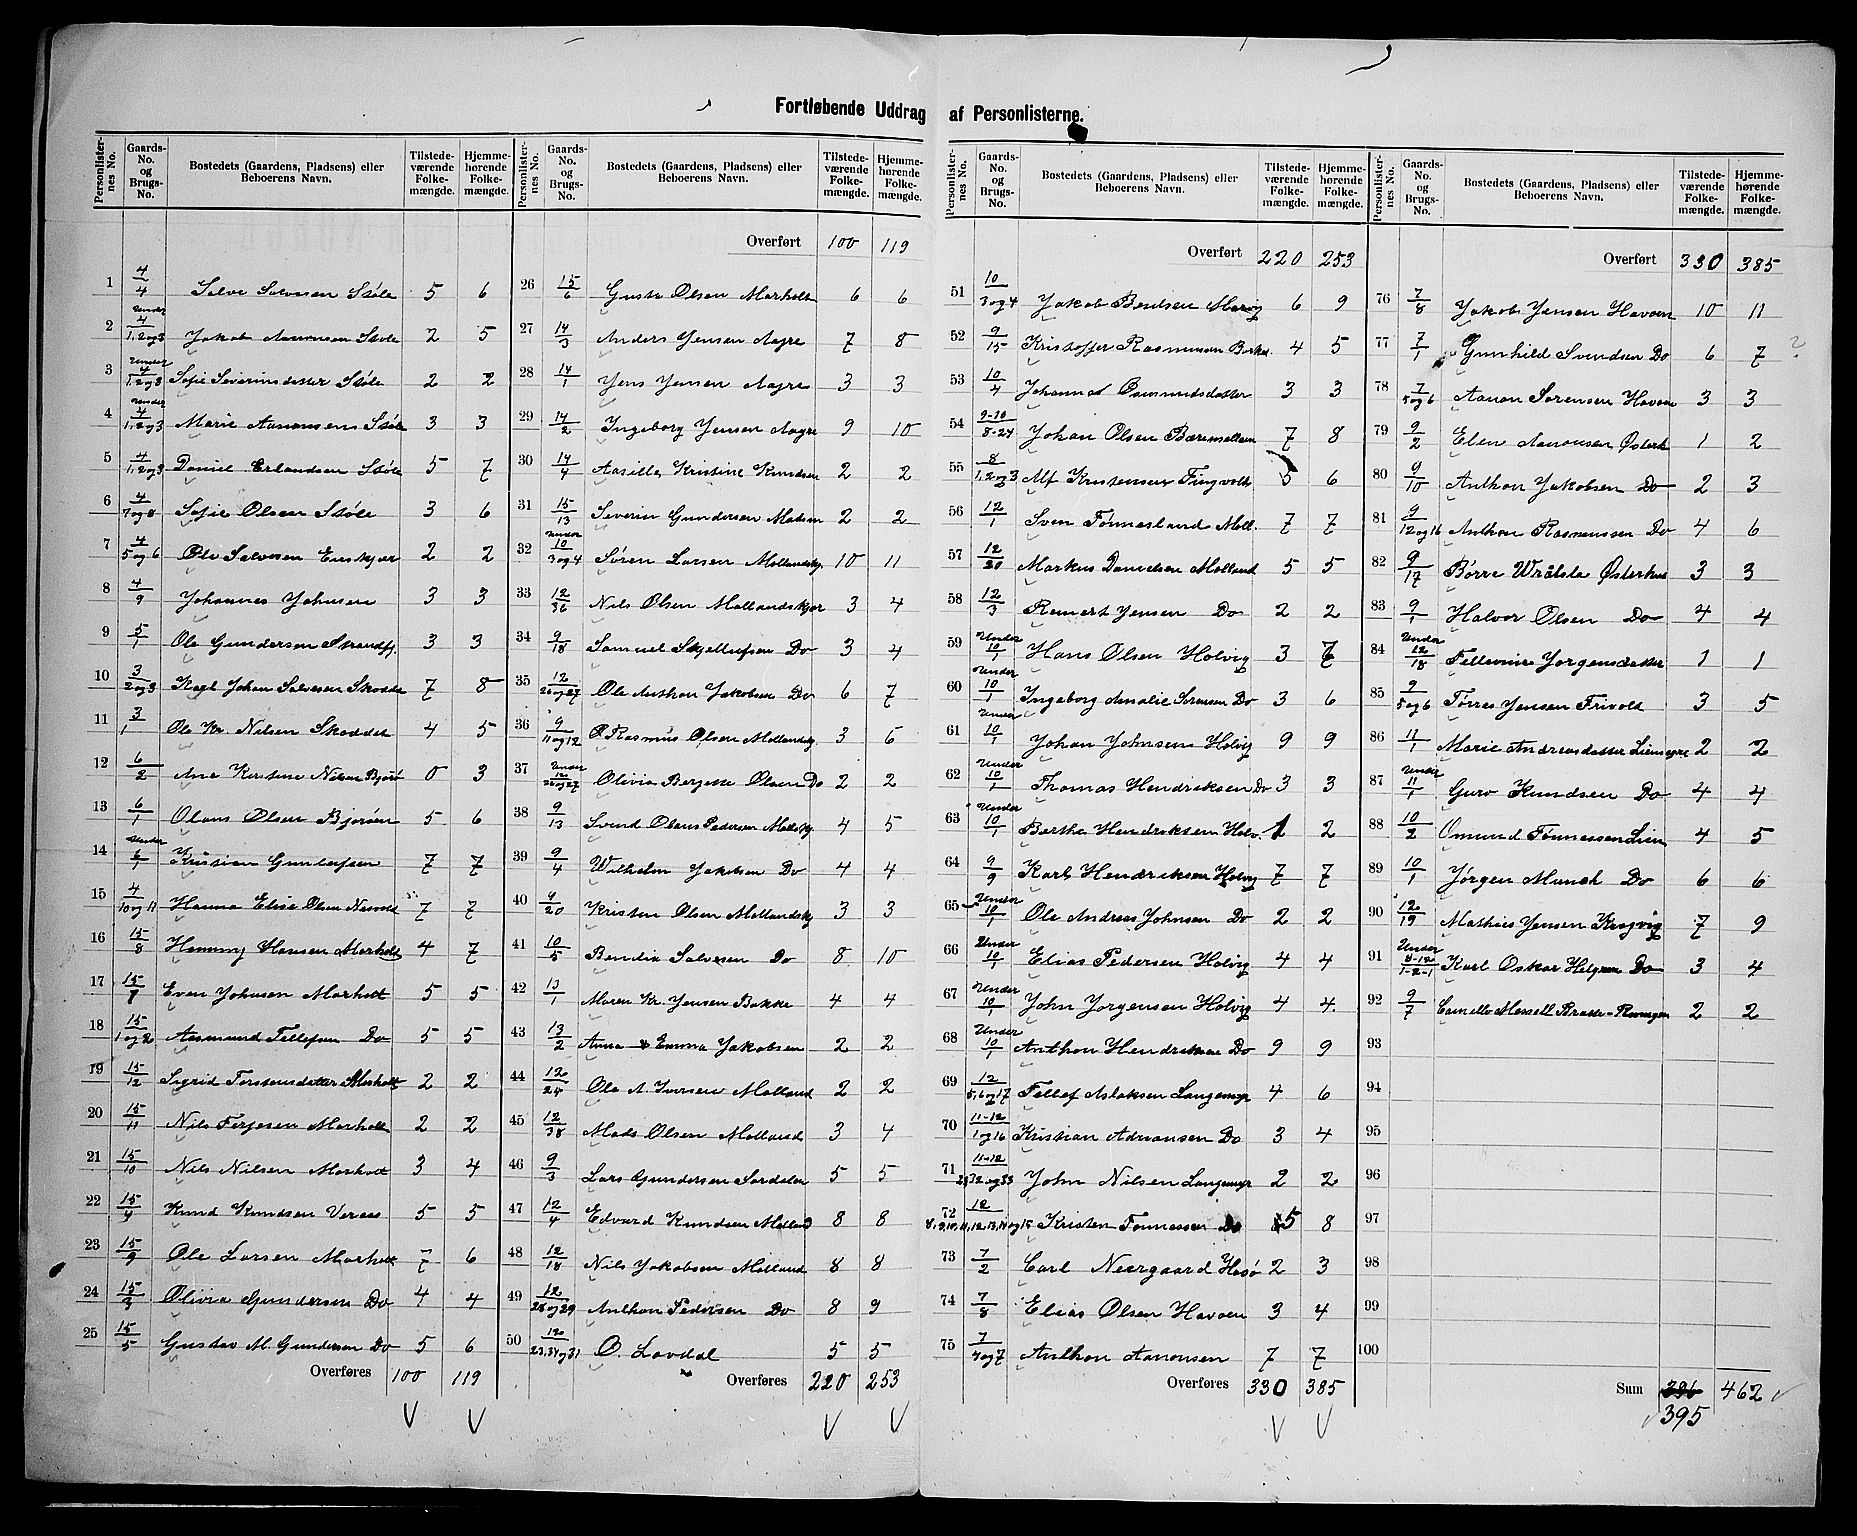 Fortløbende Uddrag af Personlisterne.
Personlisternes No. Gaards-No. og Brugs-No. Bostedets (Gaardens, Pladsens) eller Beboerens Navn. Tilstedeværende Folkemængde. Hjemmehørende Folkemængde.
1 4/4 Salve Salvesen Støle 5 6
2 Under 4/1,2og3 Jakob Aanonsen Støle 2 5
3 Under 4/1,2og3 Sofie Severinsdatter Støle 2 2
4 Under 4/1,2og3 Marie Aanonsens Støle 3 3
5 4/1,2og3 Daniel Erlandsen Støle 5 7
6 4/7og8 Sofie Olsen Støle 3 6
7 4/5og6 Ole Salvesen Enskjær 2 2
8 4/9 Johannes Johnsen 3 3
9 5/1 Ole Gundersen 3 3
10 3/2og3 Karl Johan Salvesen 7 8
11 3/1 Ole Kr. Nilsen 4 5
12 6/2 Ane Kirstine Nilsen 0 3
13 6/1 Olaus Olsen Bjorøen 5 6
14 Under 6/1 Kristian Gunleifsen 7 7
15 4/10og11 Hanna Elise Olsen 7 7
16 15/8 Hansen Marholt 4 7
17 15/7 Even Johnsen Marholt 5 5
18 15/1og2 Aasmund Tellefsen Do 5 5
19 15/12 Sigrid Torstensdatter Marholt 2 2
20 15/11 Nils Terjesen Marholt 2 2
21 15/10 Nils Nilsen Marholt 3 4
22 15/4 Knud Knudsen 5 5
23 15/9 Ole Larsen Marholt 7 6
24 15/3 Olivia Gundersen Do 4 4
25 15/5 Gustav M. Gundersen Do 5 6
Overføres 100 119
Personlisternes No. Gaards-No. og Brugs-No. Bostedets (Gaardens, Pladsens) eller Beboerens Navn. Tilstedeværende Folkemængde. Hjemmehørende Folkemængde.
Overført 100 119
26 15/6 Olsen Marholt 6 6
27 14/3 Anders Jensen Aagre 7 8
28 14/1 Jens Jensen Aagre 3 3
29 14/2 Ingeborg Jensen Aagre 9 10
30 14/4 Kristine Knudsen 2 2
31 15/13 Severin Gundersen 2 2
32 Under 10/3og4 Søren Larsen 10 11
33 12/36 Nils Olsen Mollandskjær 3 4
34 9/18 Samuel Do 3 4
35 12/26og27 Ole Anthon Jakobsen Do 6 7
36 9/11og12 Rasmus Olsen 3 6
37 Under 12/26og27 Olivia Bergette Olsen Do 2 2
38 9/13 Svend Olaus Pedersen 4 5
39 9/4 Wilhelm Jakobsen Do 4 4
40 9/20 Kristen Olsen Mollandskj 3 3
41 10/5 Salvesen Do 8 10
42 13/1 Maren Kr. Jensen Bakke 4 4
43 13/2 Anna & Emma Jakobsen 2 2
44 12/24 Ole A. Iversen Molland 2 2
45 12/38 Mads Olsen Molland 3 4
46 9/3 Lars Gundersen 5 5
47 12/4 Edvard Knudsen Molland 8 8
48 12/18 Nils Jakobsen Molland 8 8
49 12/28og29 Anthon Pedersen Do 8 9
50 O Lovdal 5 5
Overføres 220 253
Personlisternes No. Gaards-No. og Brugs-No. Bostedets (Gaardens, Pladsens) eller Beboerens Navn. Tilstedeværende Folkemængde. Hjemmehørende Folkemængde.
Overført 220 253
51 10/3og4 Jakob Bendsen 6 9
52 9/15 Kristoffer Rasmussen 4 5
53 10/4 3 3
54 9-10/8-24 Johan Olsen 7 8
55 8/1,2og3 Alf Kristensen Tingvold 5 6
56 12/1 Sven Tønnesland Moll. 7 7
57 12/20 Markus Danielsen Molland 5 5
58 12/3 Reinert Jensen Do 2 2
59 Under 10/1 Hans Olsen Holvig 3 7
60 Under 10/1 Ingeborg Amalie Sørensen Do 3 6
61 Under 10/1 Johan Johnsens Holvig 9 9
62 Under 10/1 Thomas Hendriksen Do 3 3
63 Under 10/1 Berthe Hendriksen Holv. 1 2
64 9/9 Karl Hendriksen Holvig 7 7
65 Under 10/1 Ole Andreas Johnsen Do 2 2
66 Under 10/1 Elias Pedersen Holvig 4 4
67 Under 10/1 John Jørgensen Holvig 4 4
68 Under 10/1 Anthon Hendriksen Do 9 9
69 12/5,6og17 Tellef Aslaksen Langemyr 4 6
70 11-12/1og16 Kristian Adriansen Do 3 4
71 11-12 John Nilsen Langemyr 2 2
72 12/8,9,10,11,12,13,14og15 Kristen Tønnessen Do 5 8
73 7/2 Carl Neergaard Hesø 2 3
74 7/8 Elias Olsen Havøen 3 4
75 7/4og7 Anthon Aanonsen 7 7
Overføres 330 385
Personlisternes No. Gaards-No. og Brugs-No. Bostedets (Gaardens, Pladsens) eller Beboerens Navn. Tilstedeværende Folkemængde. Hjemmehørende Folkemængde.
Overført 330 385
76 7/8 Jakob Jensen Havøen 10 11
77 7/1 Gunhild Svendsen Do 6 7 ?
78 7/5og6 Aanon Sørensen Havøen 3 3
79 9/2 Elen Aanonsen Østerh 1 2
80 9/10 Anthon Jakobsen Do 2 3
81 9/12og16 Anthon Rasmussen Do 4 6
82 9/17 Børre Wrålsta Østerhus 3 3
83 9/1 Halvor Olsen Do 4 4
84 Under 12/18 Jørgensdatter 1 1
85 9/5og6 Tørres Jensen Frivold 3 5
86 11/1 Marie Andreasdatter 2 2
87 Under 11/1 Guro Knudsen Do 4 4
88 10/2 Omund Tønnessen Lien 4 5
89 10/1 Jørgen Munch Do 6 6
90 12/19 Mathias Jensen 7 9
91 Under 8-12/1-2-1 Karl Oskar Helgesen Do 3 4
92 9/7 2 2
93
94
95
96
97
98
99
100
Sum 396 462
395